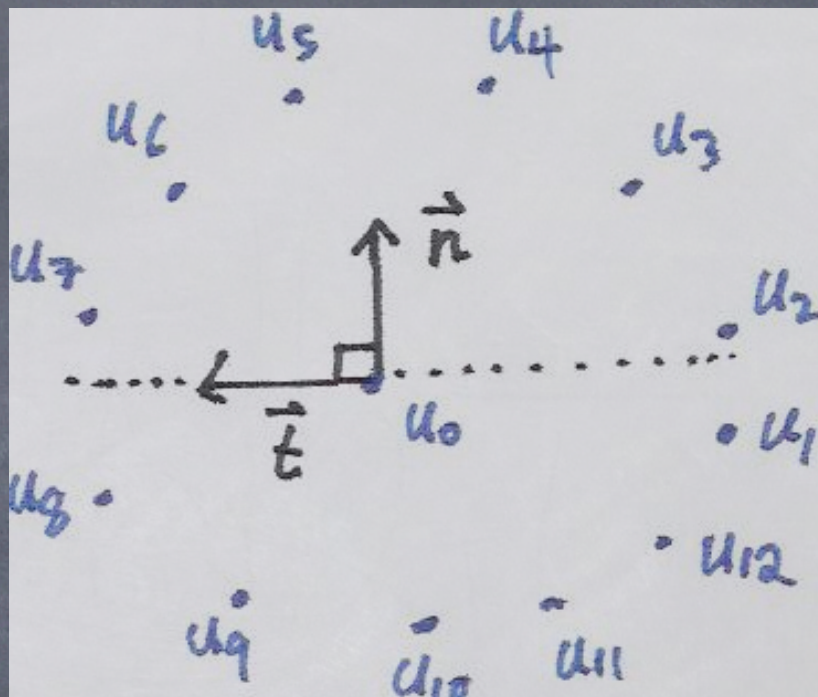 u5 u4
u6 u3
n⃗
u7 u2
u0 u1
t⃗
u8
u12
u9 u10 u11